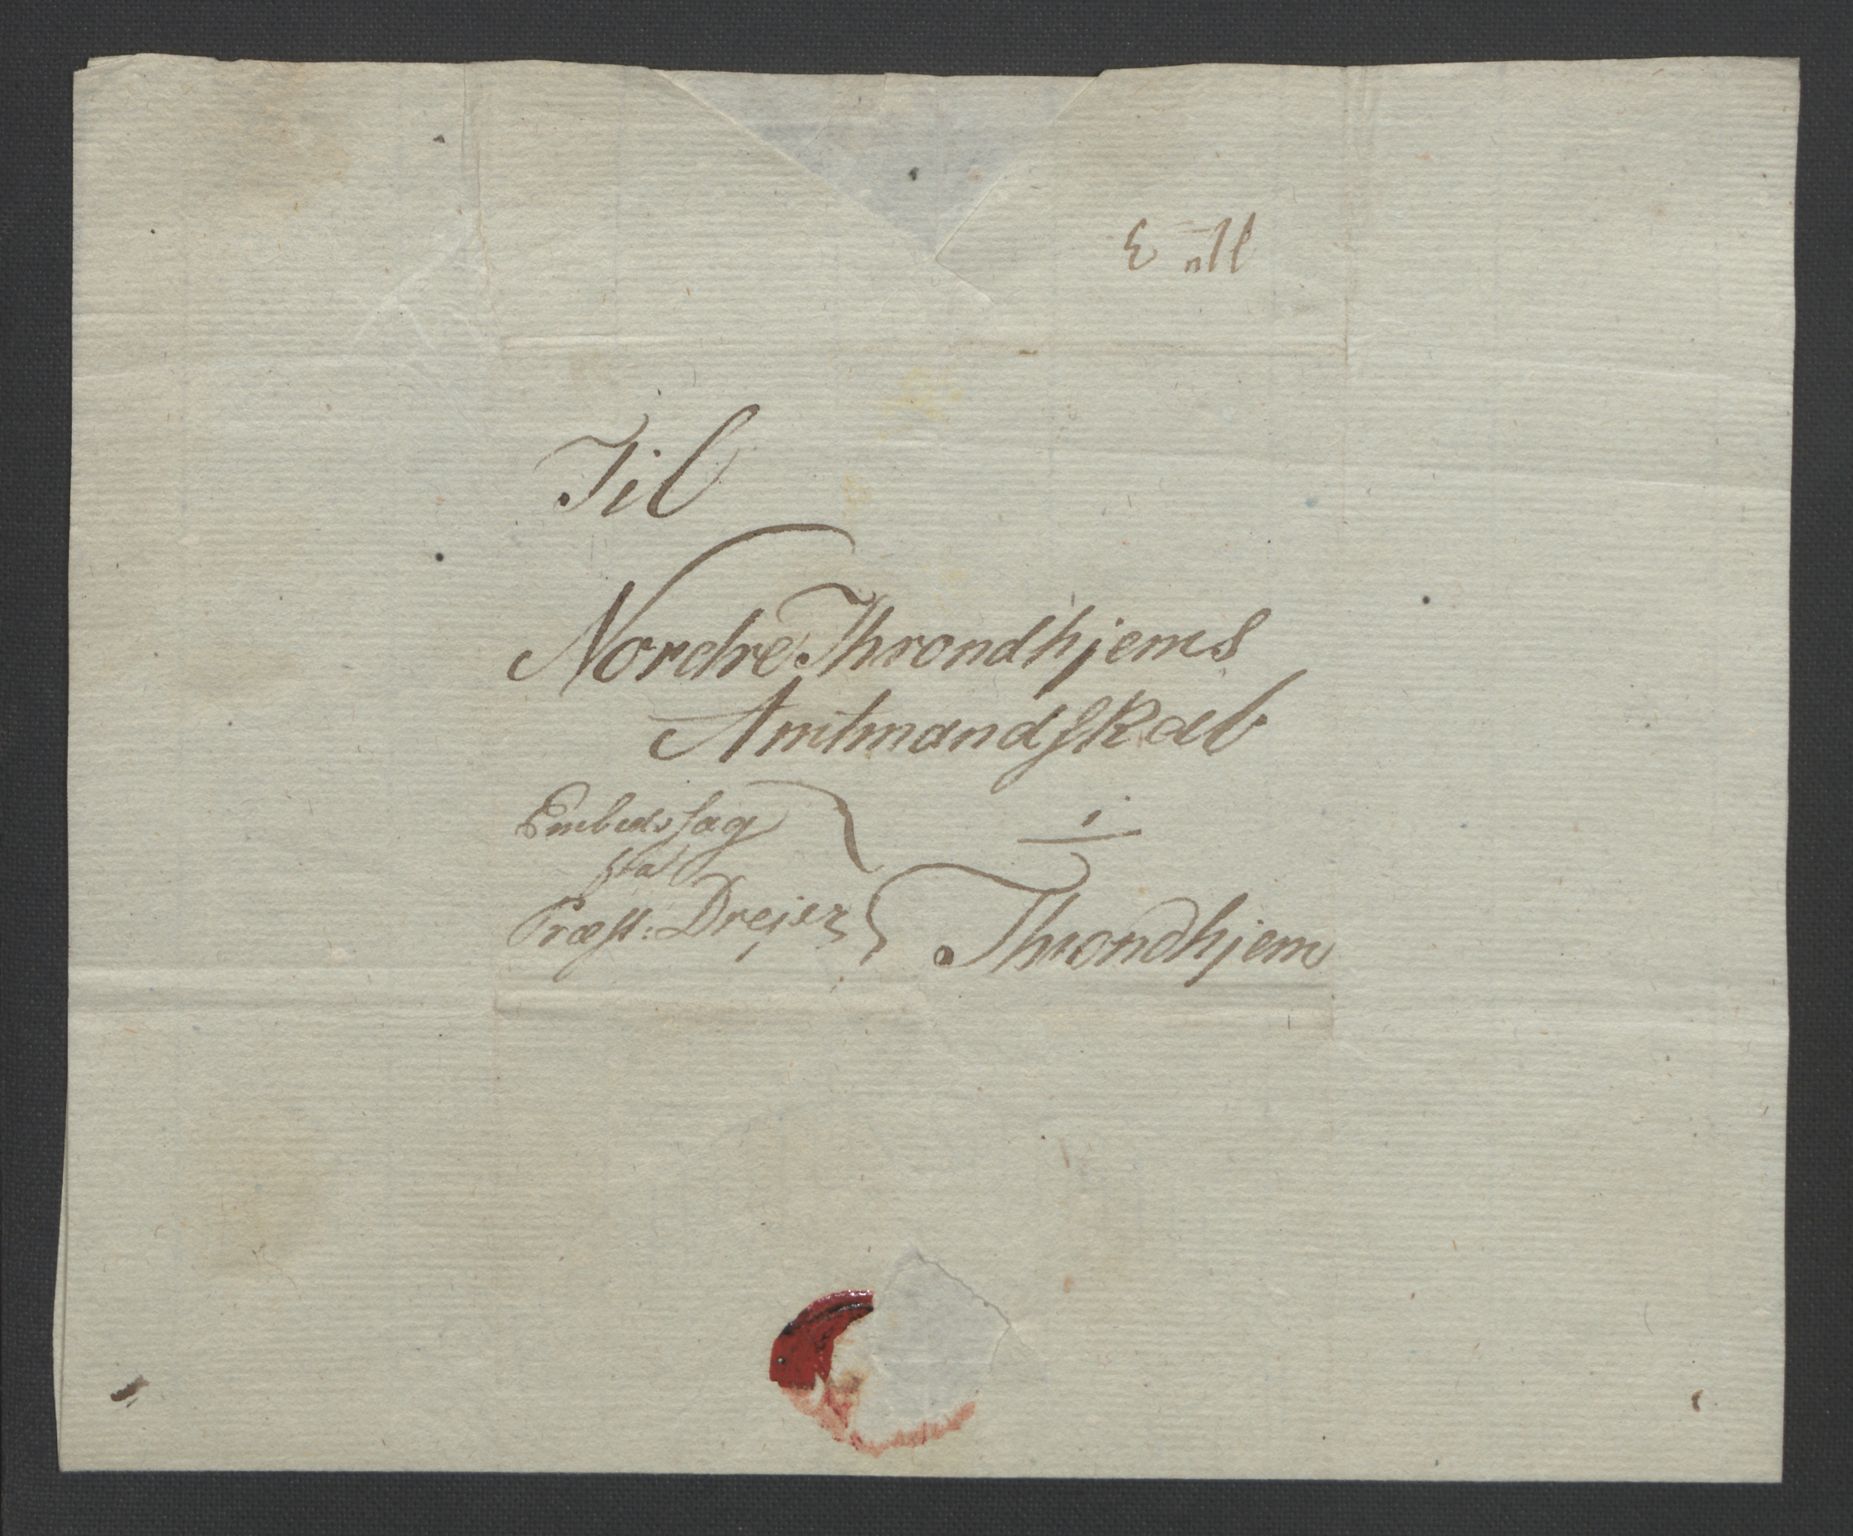 Til
Nordre Throndhjems
Amtmandskab
i
Throndhjem
Embedssag
fra
Præst: Drejer